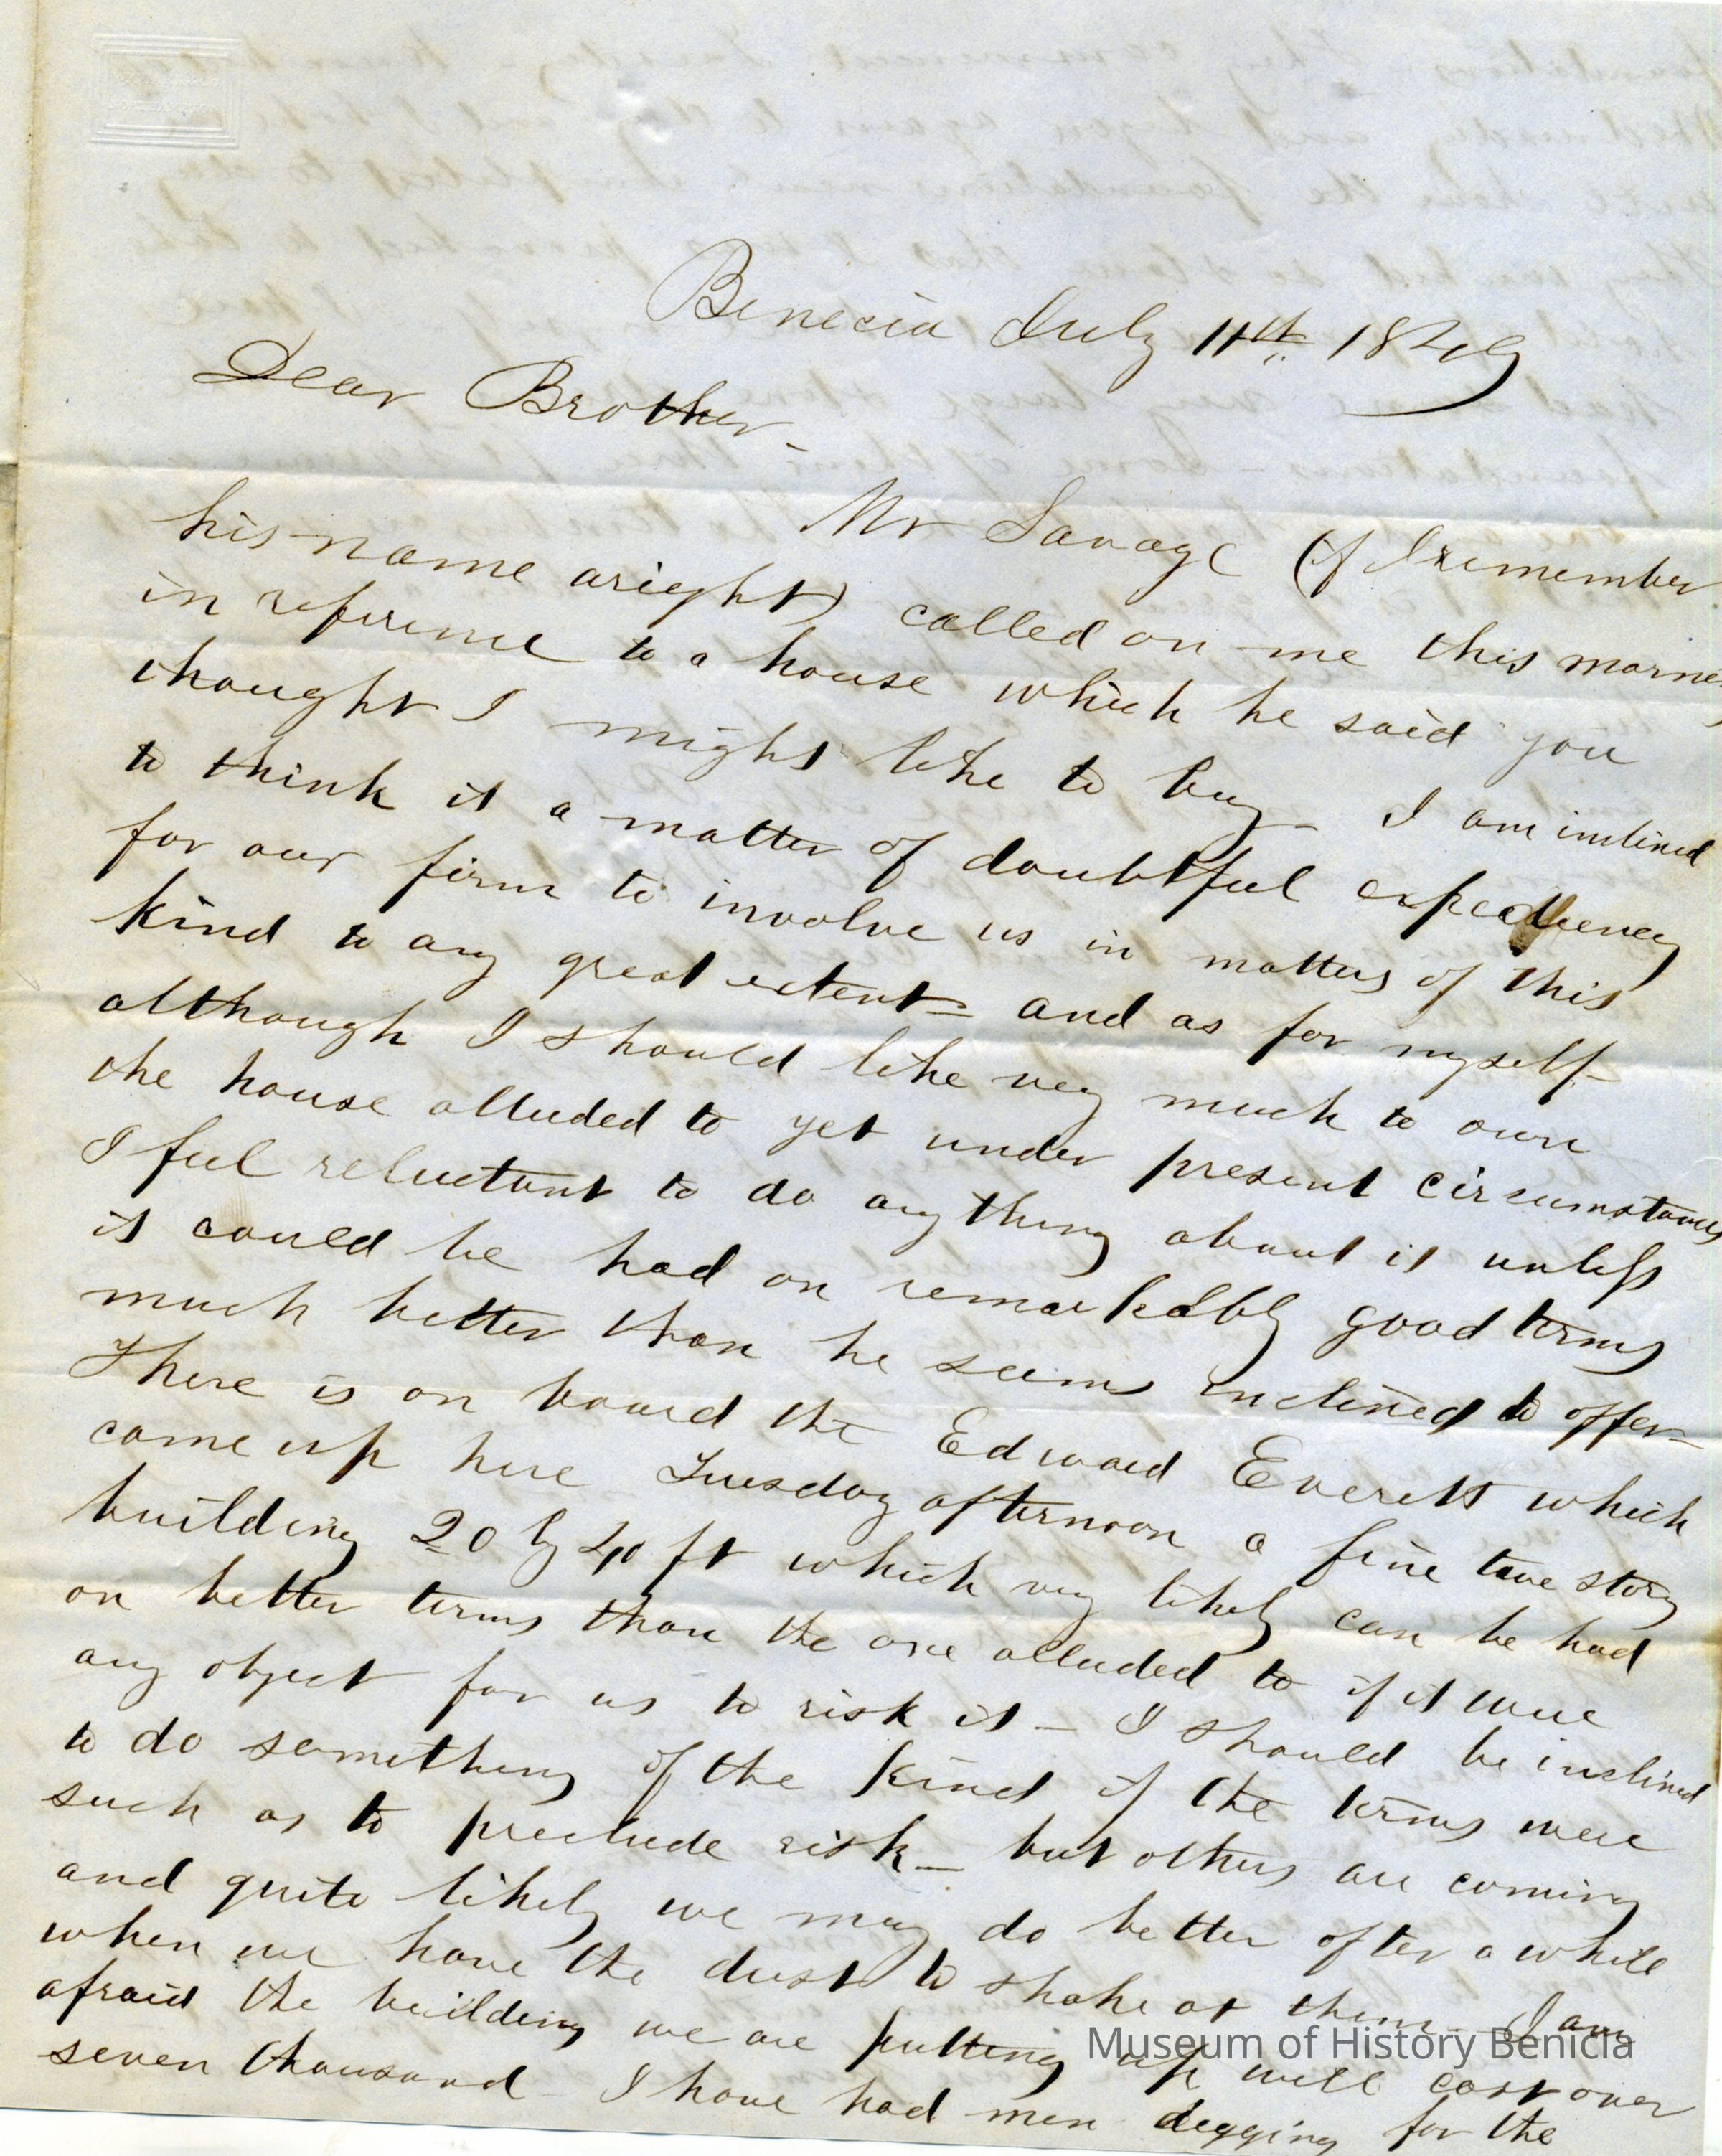 Benecia July 11th. 1849
Dear Brother -
Mr Savage (if I remember
his name aright) called on me this morning
in reference to a house which he said you
thought I might like to buy - I am inclined
to think it a matter of doubtful expediency
for our firm to involve us in matters of this
kind to any great extent - and as for myself -
although I should like very much to own
the house alluded to yet under present circumstances
I feel reluctant to do any thing about it unless
it could be had on remarkably good terms
much better than he seems inclined to offer -
There is on board the Edward Everett which
came up here Tuesday afternoon a fine two story
building 20 by 40 ft which very likely can be had
on better terms than the one alluded to if it were
any object for us to risk it - I should be inclined
to do something of the kind if the terms were
such as to preclude risk - but others are coming
and quite likely we may do better after a while
when we have the dust to shake at them - I am
afraid the building we are putting up will cost over
seven thousand - I have had men digging for the
Museum of History Benicia